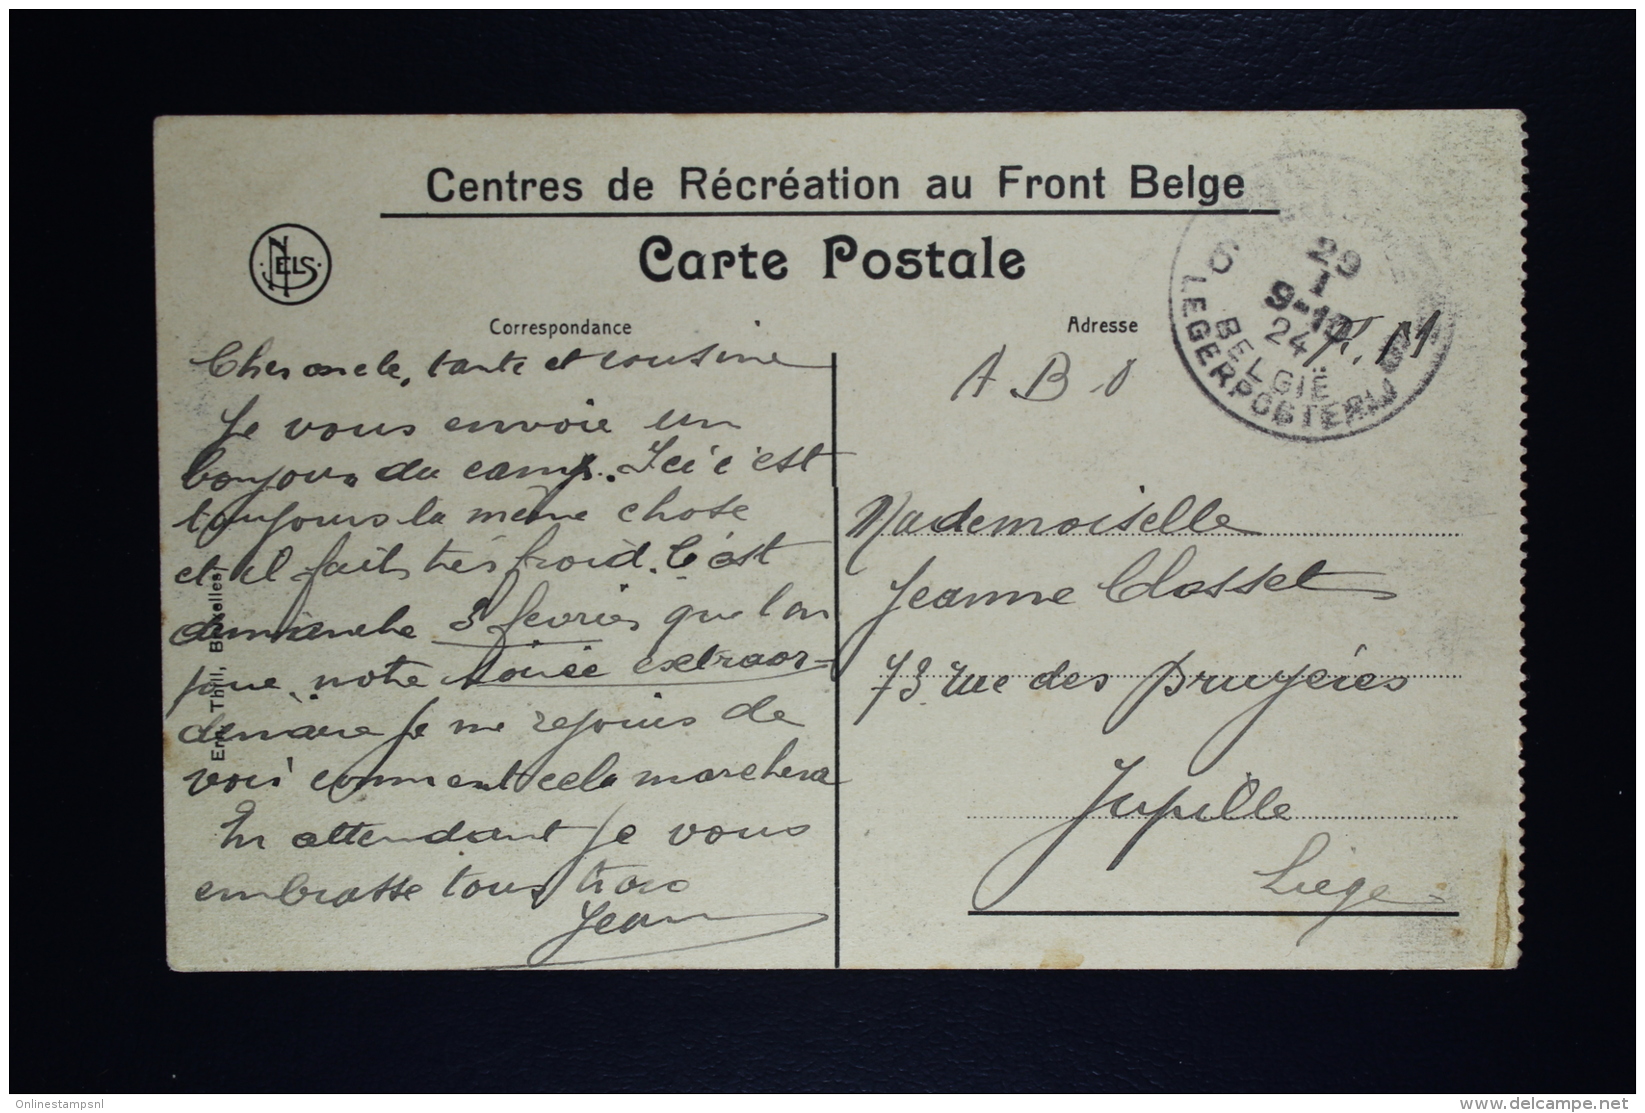 Centres de Récréation au Front Belge
NELS
Carte Postale
Correspondance
Adresse
29
I
9-10
24
6
BELGIË
LEGERPOSTERIJ
F. M
A B O
Cher oncle, tante et cousine
Je vous envoie un
bonjour du camp. Ici c'est
toujours la même chose
et il fait très froid. C'est
dimanche 3 fevrier que l'on
joue notre soirée extraor=
dinaire Je me rejouis de
voir comment cela marchera
En attendant Je vous
embrasse tous trois
Jean
Mademoiselle
Jeanne Closset
73 rue des Bruyéres
Jupille
Liege
Ern. Thill, Bruxelles
Onlinestampsnl
www.delcampe.net